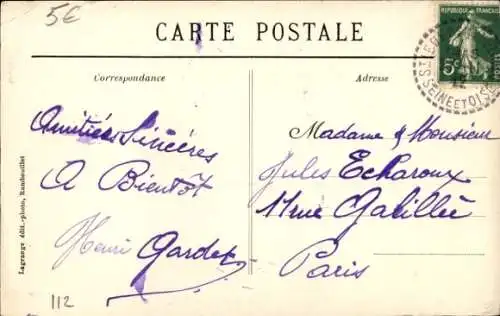 5€
CARTE POSTALE
Correspondance
Adresse
REPUBLIQUE FRANÇAISE
5c
SEINE ET OISE
Amitiés Sincères
A Bientôt
Henri Gardet
Madame & Monsieur
Jules Echaroux
11 rue Galillée
Paris
Lagrange édit.-photo, Rambouillet
112